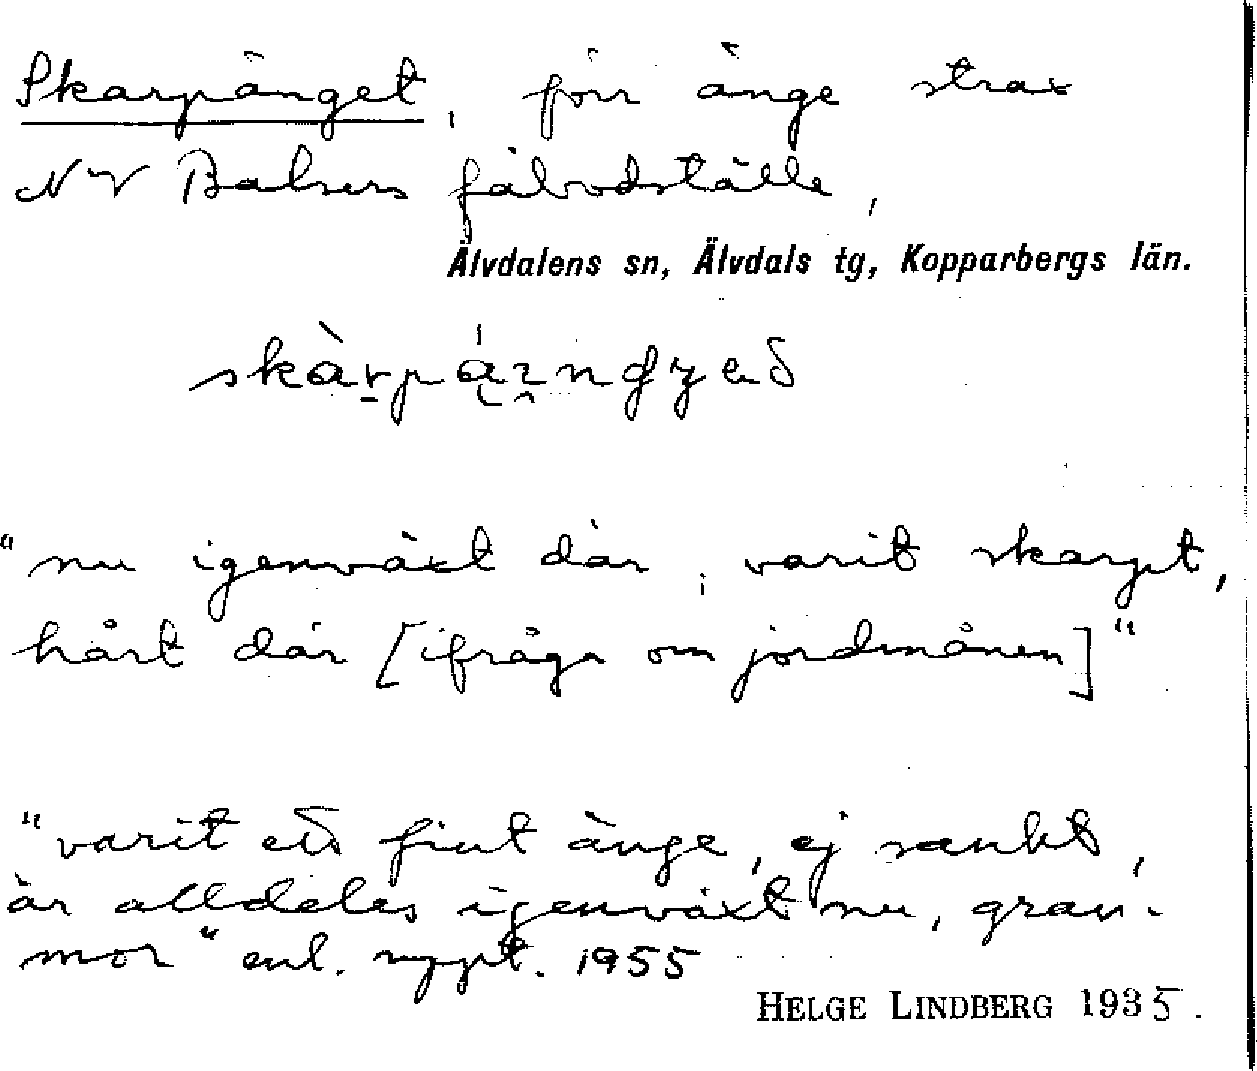 Skarpänget, förr änge strax
NV Balsers fäbodställe,
Älvdalens sn, Älvdals tg, Kopparbergs län.
"nu igenväxt där, varit skarpt,
hårt där [ifråga om jordmånen]"
"varit ett fint änge, ej sankt,
är alldeles igenväxt nu, gran-
mor" enl. uppt. 1955
HELGE LINDBERG 1935.